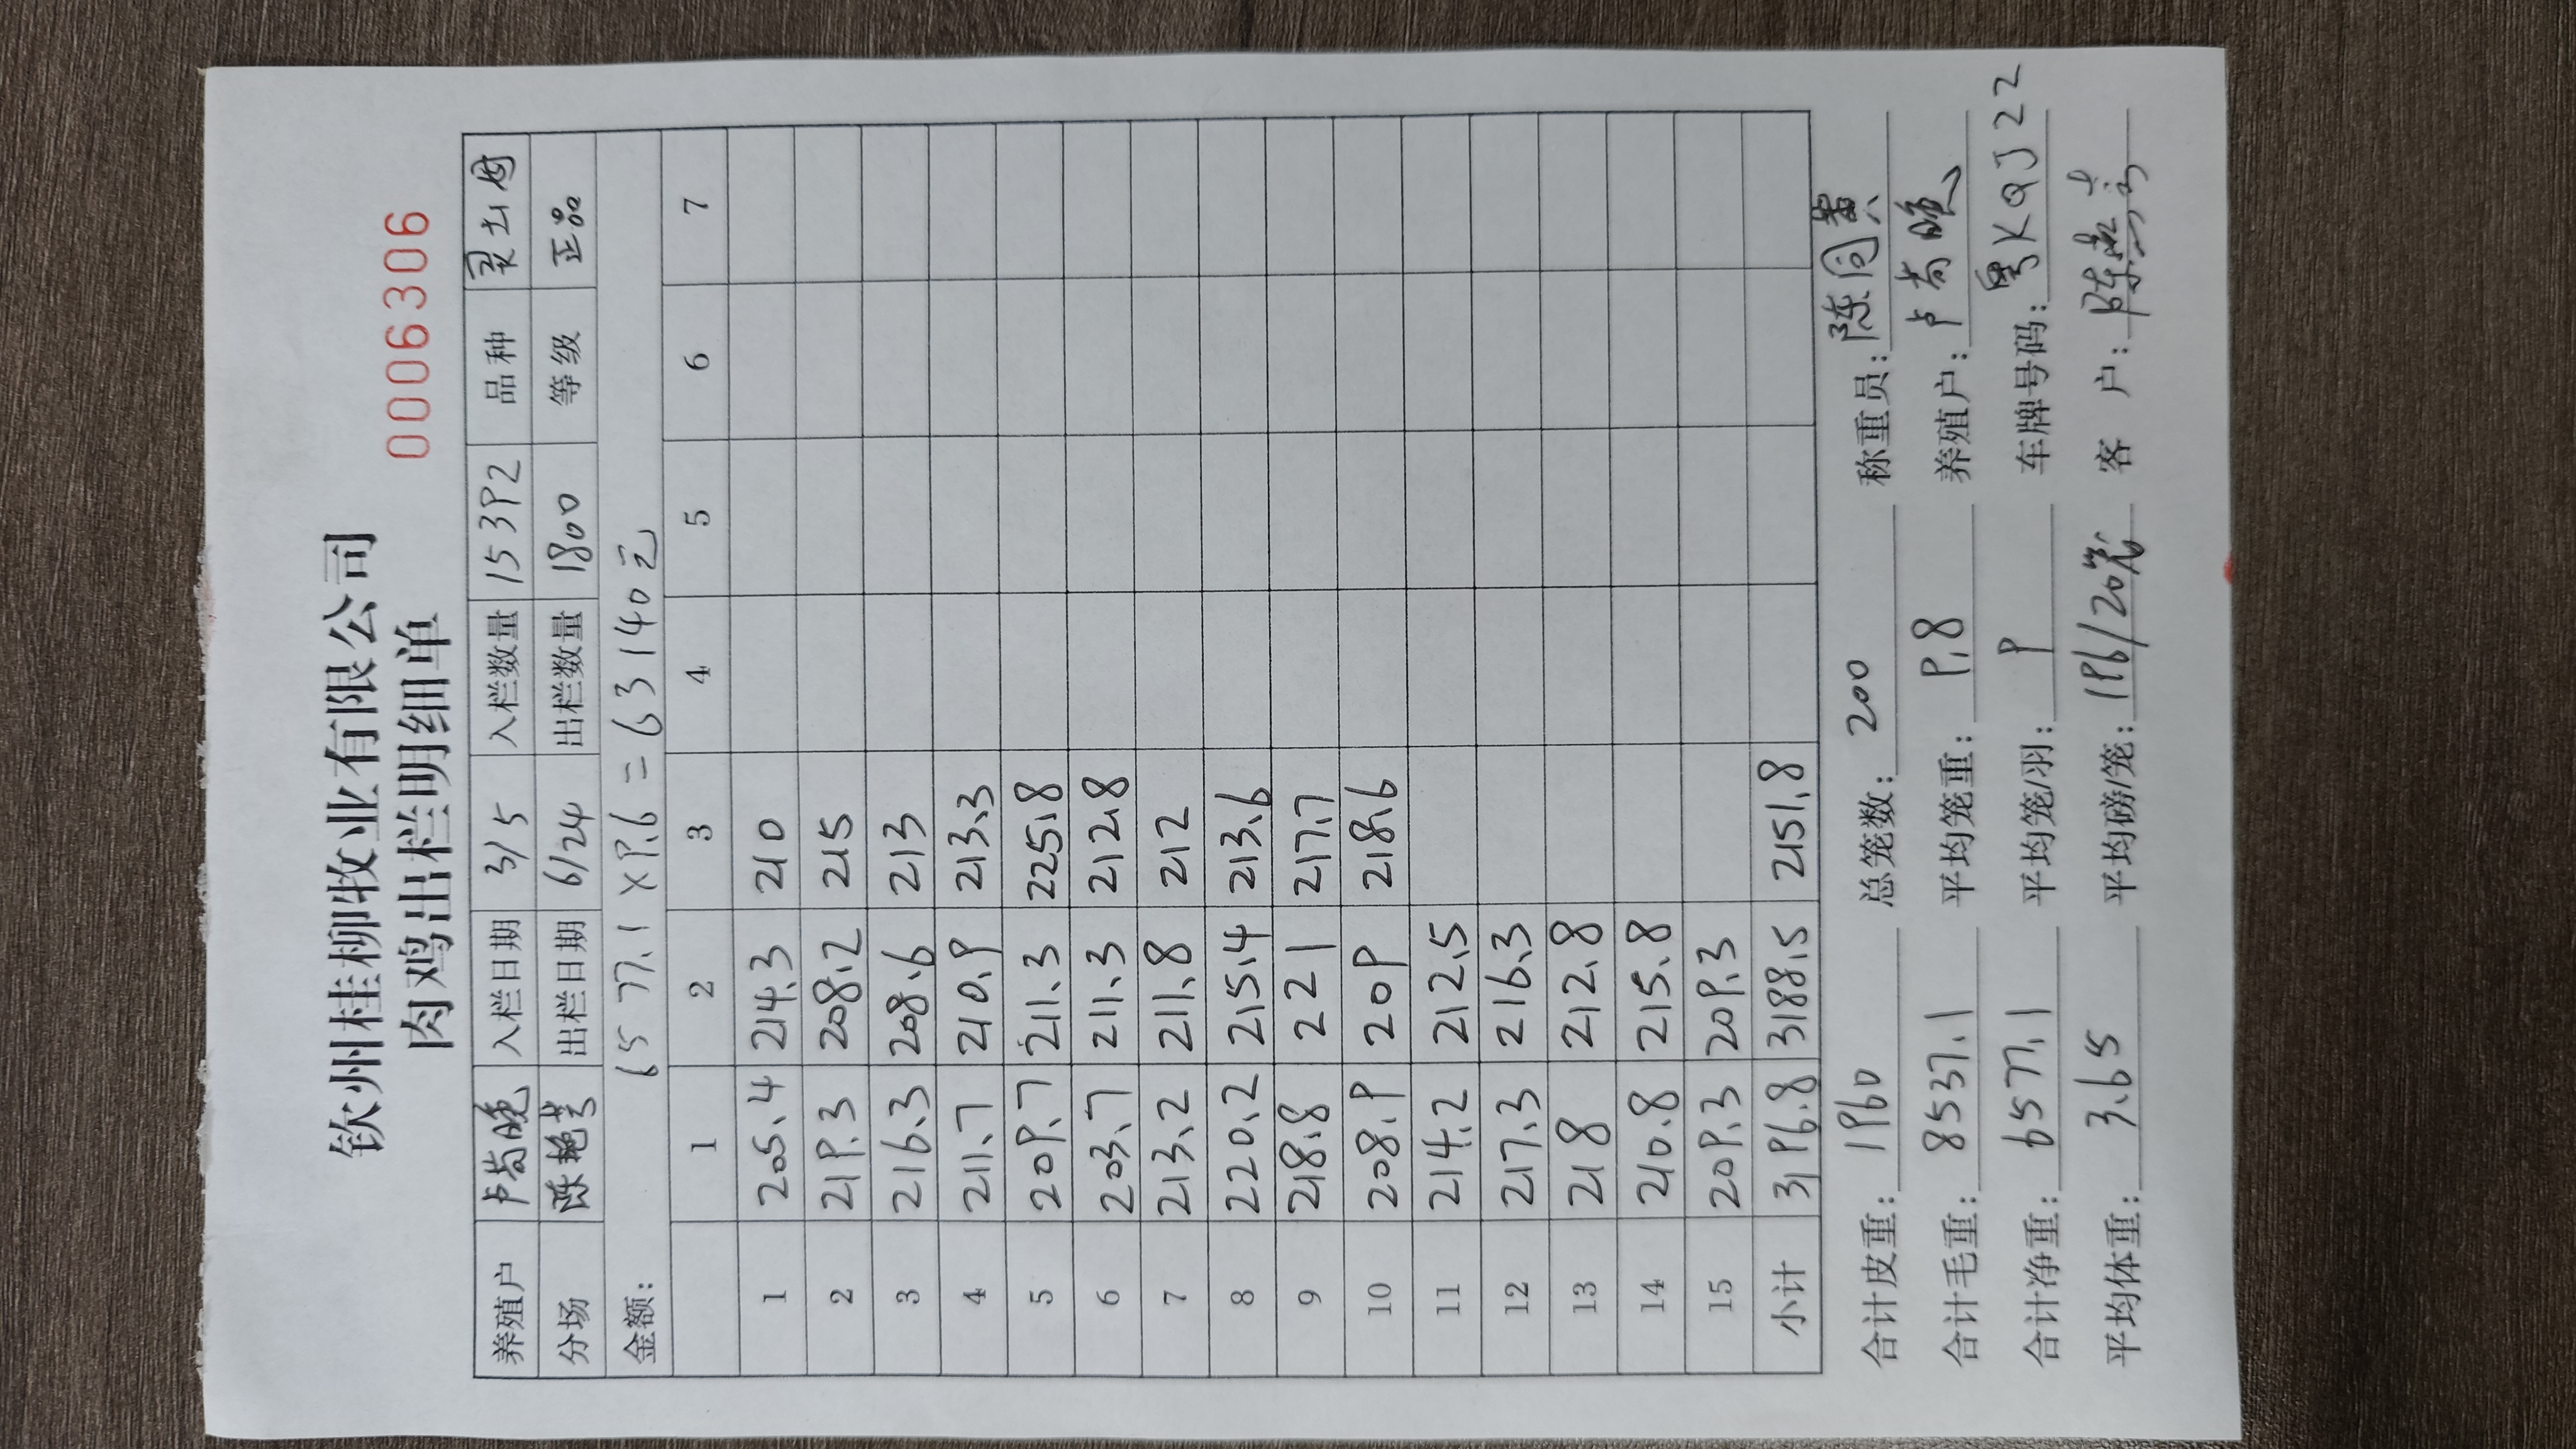 钦州桂柳牧业有限公司
肉鸡出栏明细单
0006306
养殖户 卢菊晚 入栏日期 3/5 入栏数量 15392 品种
分场 陈艳芳 出栏日期 6/24 出栏数量 1800 等级 正品
金额: 6577.1×9.6=63140元
1 2 3 4 5 6 7
1 205.4 214.3 210
2 219.3 208.2 215
3 216.3 208.6 213
4 211.7 210.9 213.3
5 209.7 211.3 225.8
6 203.7 211.3 212.8
7 213.2 211.8 212
8 220.2 215.4 213.6
9 218.8 221 217.7
10 208.9 209 218.6
11 214.2 212.5
12 217.3 216.3
13 218 212.8
14 210.8 215.8
15 209.3 209.3
小计 3196.8 3188.5 2151.8
合计皮重: 1960 总笼数: 200 称重员: 陈同贵
合计毛重: 8537.1 平均笼重: 9.8 养殖户: 卢菊晚
合计净重: 6577.1 平均笼/羽: 9 车牌号码: 粤KQJ22
平均体重: 3.65 平均磅/笼: 196/20笼 客 户: 陈